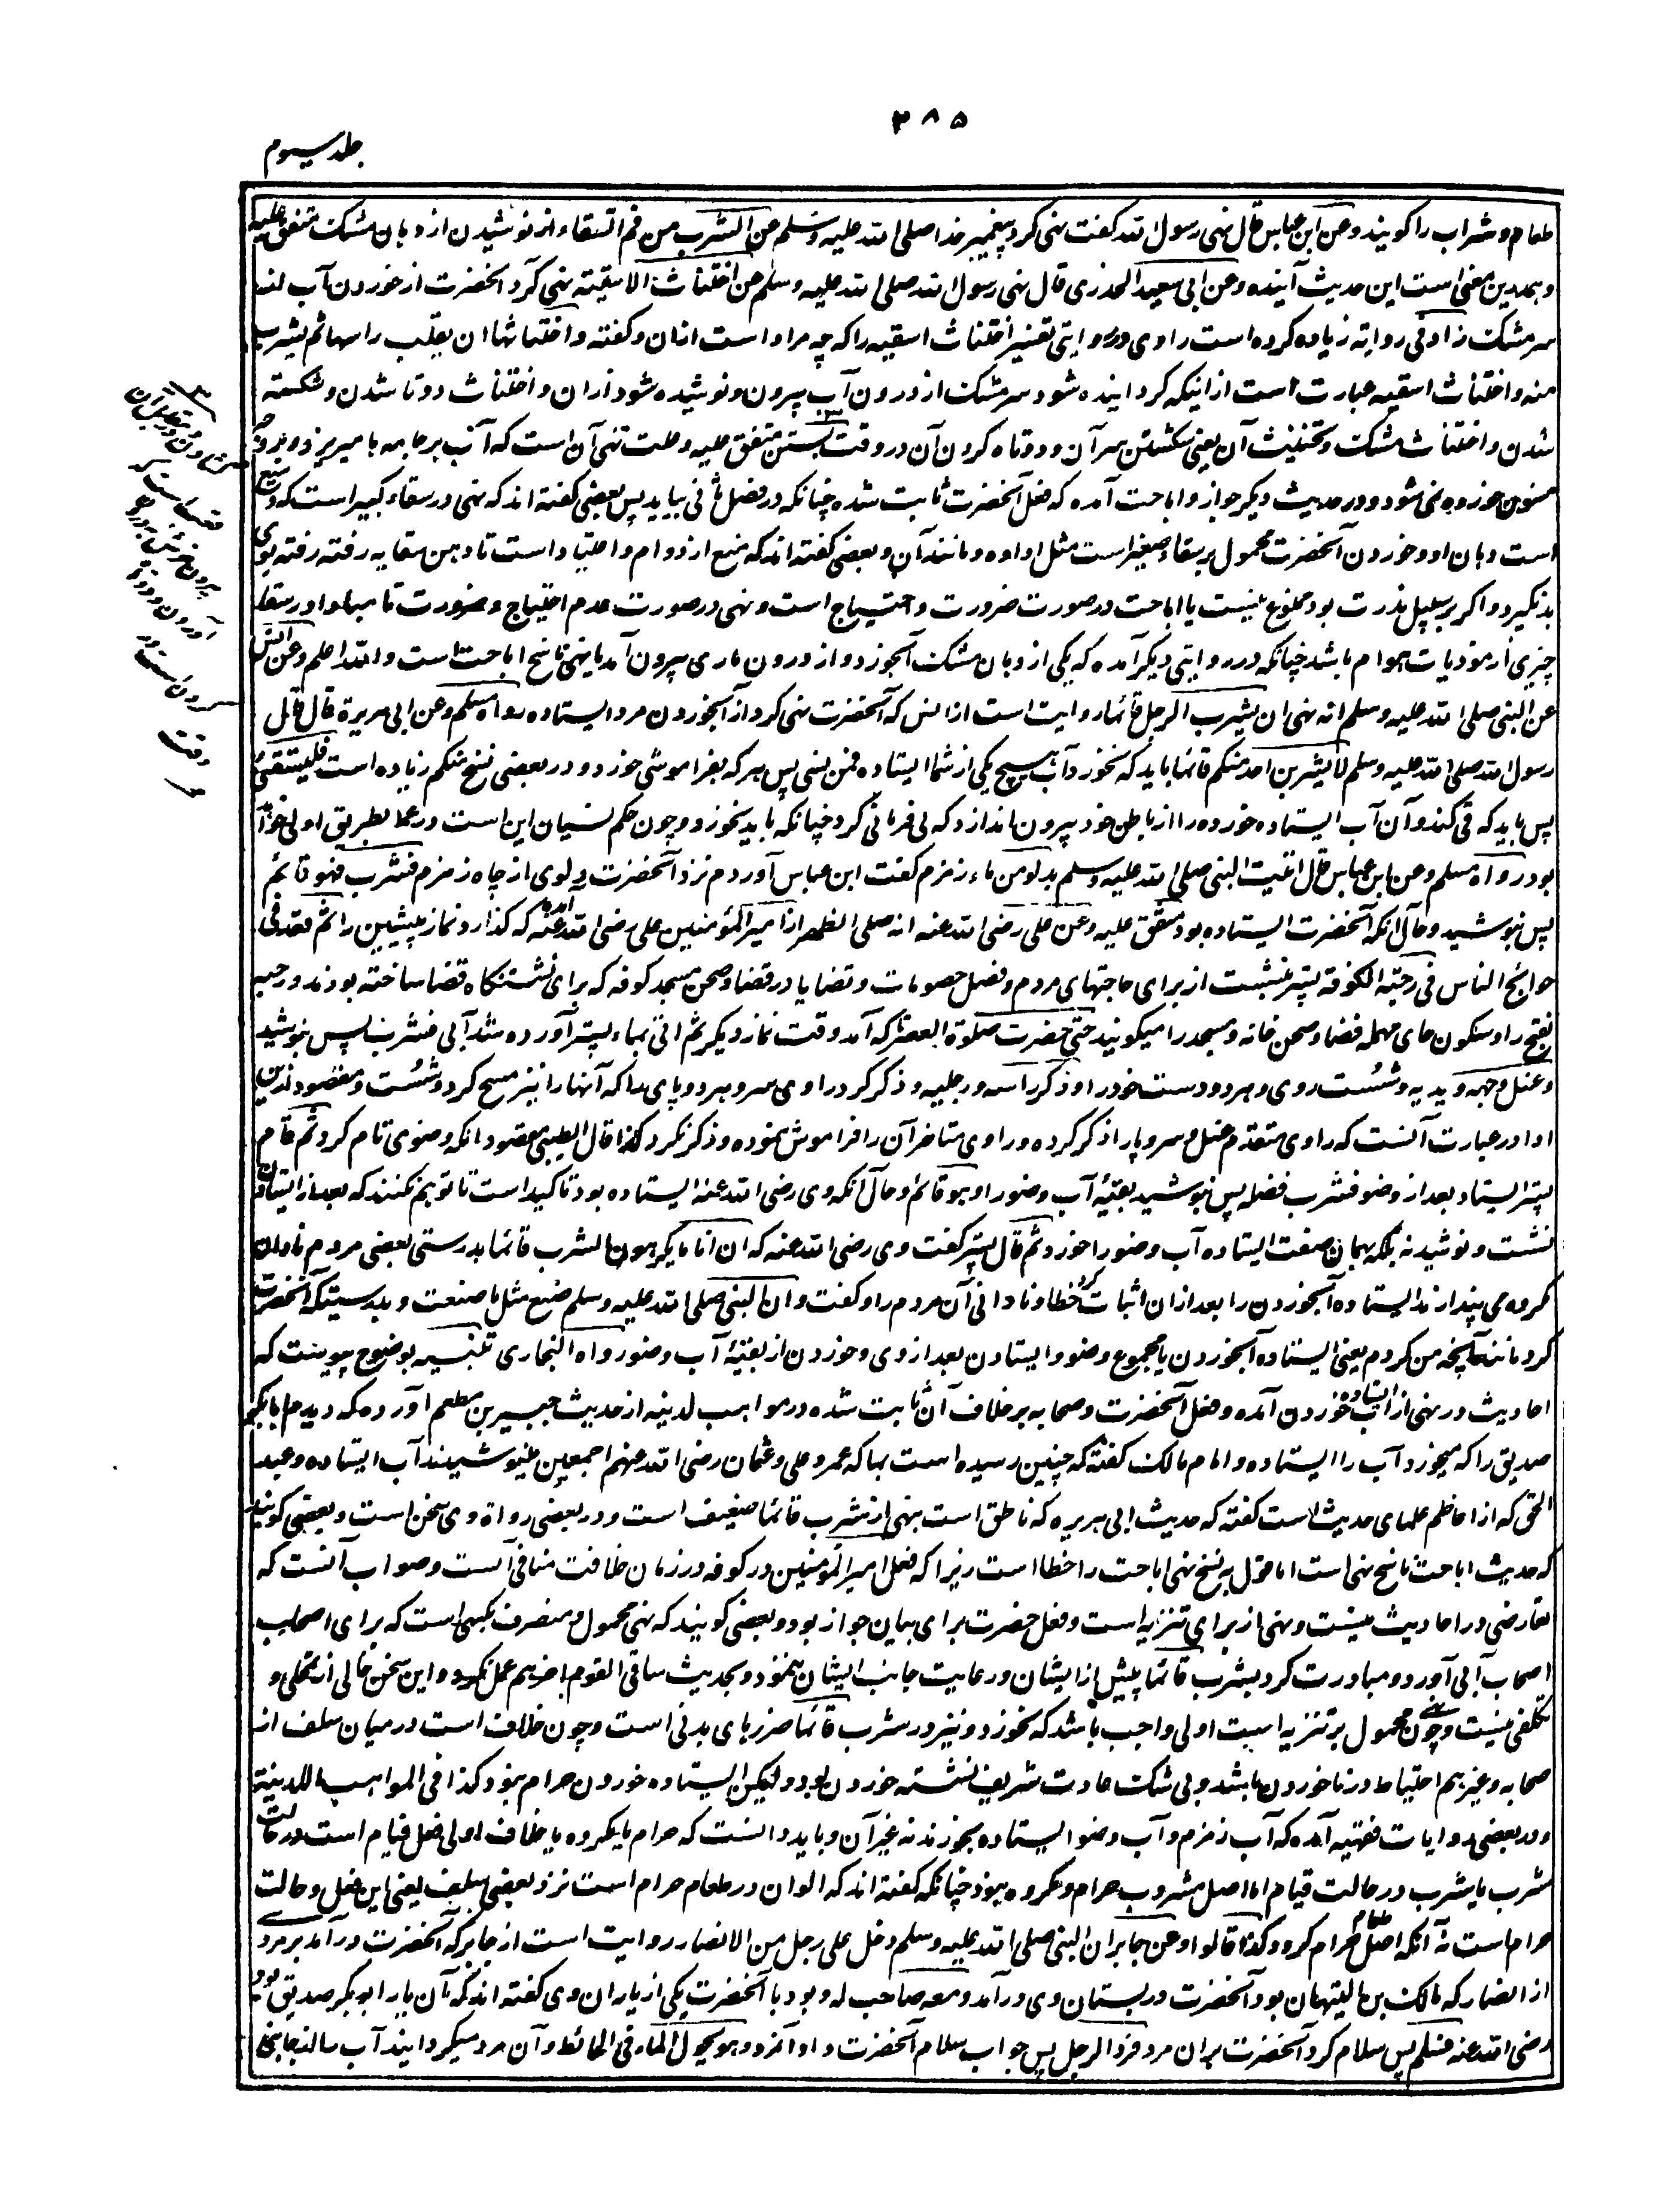 ۳۸۵
جلد سیوم
طعام و شراب را گویند وعن ابن عباس قال نهی رسول الله گفت نهی کرد پیغمبر خدا صلی الله علیه وسلم عن الشرب من فم السقاء از نوشیدن از دهان مشک متفق علیه
و بهمدین معنی است این حدیث آینده وعن ابی سعید الخدری قال نهی رسول الله صلی الله علیه وسلم عن اختناث الاسقیة نهی کرد آنحضرت از خوردن آب از
سر مشک زاد فی روایة زیاده کرده است راوی در روایتی تفسیر اختناث اسقیه را که چه مراد است ازان و گفته و اختناثها ان یقلب راسها ثم یشرب
منه و اختناث اسقیه عبارت است از اینکه گردانیده شود سر مشک از درون آب بیرون و نوشیده شود ازان و اختناث دوتا شدن و شکسته
شدن و اختناث مشک و تخنیث آن یعنی شکستن سر آن و دوتاه کردن آن در وقت بستن متفق علیه وعلت نهی آن است که آب بر جامه ها میریزد و بروجه
مسنون خورده نمی شود و در حدیث دیگر جواز و اباحت آمده که فعل آنحضرت ثابت شده چنانکه در فصل ثانی بیاید پس بعضی گفته اند که نهی در سقاء کبیر است که وسیع
است دهان او و خوردن آنحضرت محمول بر سقاء صغیر است مثل اداوه و مانند آن و بعضی گفته اند که منع از دوام و اعتیاد است تا دهن سقایه رفته رفته بوی
بد نگیرد و اگر بر سبیل ندرت بود ممنوع نیست یا اباحت در صورت ضرورت و احتیاج است و نهی در صورت عدم احتیاج و ضرورت تا مبادا در سقاء
چیزی از موذیات هوام باشد چنانکه در روایتی دیگر آمده که یکی از دهان مشک آب خورد و از درون ماری بیرون آمد یا نهی ناسخ اباحت است والله اعلم وعن انس
عن النبی صلی الله علیه وسلم انه نهی ان یشرب الرجل قائما روایت است از انس که آنحضرت نهی کرد از آب خوردن مرد ایستاده رواه مسلم وعن ابی هریرة قال قال
رسول الله صلی الله علیه وسلم لا یشربن احد منکم قائما باید که نخورد آب هیچ یکی از شما ایستاده فمن نسی پس هر که بفراموشی خورد و در بعضی نسخ منکم زیاده است فلیستقئ
پس باید که قی کند و آن آب ایستاده خورده را از باطن خود بیرون اندازد که بی فرمانی کرد چنانکه باید نخورد و چون حکم نسیان این است در عمد بطریق اولی خواهد
بود رواه مسلم وعن ابن عباس قال اتیت النبی صلی الله علیه وسلم بدلو من ماء زمزم گفت ابن عباس آوردم نزد آنحضرت دلوی از چاه زمزم فشرب وهو قائم
پس نوشید و حال آنکه آنحضرت ایستاده بود متفق علیه وعن علی رضی الله عنه انه صلی الظهر از امیر المؤمنین علی رضی الله عنه آمده که گذارد نماز پیشین را ثم قعد فی
حوائج الناس فی رحبة الکوفة پستر بنشست از برای حاجتهای مردم و فصل خصومات و قضایا در فضا و صحن مسجد کوفه که برای نشستنگاه قضا ساخته بودند و رحبه
بفتح را و سکون حای مهمله فضا و صحن خانه و مسجد را میگویند حتی حضرت صلوة العصر تا که آمد وقت نماز دیگر ثم اتی بماء پستر آورده شد آبی فشرب پس نوشید
وغسل وجهه ویدیه و شست روی و هر دو دست خود را وذکر راسه ورجلیه و ذکر کرد راوی سر و هر دو پای را که آنها را نیز مسح کرد و شست و مقصود ازین
ادا در عبارت آنست که راوی متقدم غسل و سر و پا را ذکر کرده و راوی متاخر آن را فراموش نموده و ذکر نکرد کذا قال الطیبی مقصود انکه وضوی تام کرد ثم قام
پستر ایستاد بعد از وضو فشرب فضله پس نوشید بقیهٔ آب وضو را وهو قائم و حال آنکه وی رضی الله عنه ایستاده بود تاکید است تا توهم نکنند که بعد از ایستادن
نشست و نوشید نه بلکه بهمان صفت ایستاده آب وضو را خورد ثم قال پستر گفت وی رضی الله عنه که ان اناسا یکرهون الشرب قائما بدرستی بعضی مردم نادان
مکروه می پندارند ایستاده آب خوردن را بعد ازان اثبات کرد خطا و نادانی آن مردم را و گفت وان النبی صلی الله علیه وسلم صنع مثل ما صنعت و بدرستیکه آنحضرت
کرد مانند آنچه من کردم یعنی ایستاده آب خوردن یا مجموع وضو و ایستادن بعد از وی و خوردن از بقیهٔ آب وضو رواه البخاری تنبیه بوضوح پیوست که
احادیث در نهی از ایستاده آب خوردن آمده و فعل آنحضرت و صحابه بر خلاف آن ثابت شده در مواهب لدنیه از حدیث جبیر بن مطعم آورده که دیدم ابابکر
صدیق را که میخورد آب را ایستاده و امام مالک گفته که چنین رسیده است بما که عمر و علی و عثمان رضی الله عنهم اجمعین مینوشیدند آب ایستاده و عبد
الحق که از اعاظم علمای حدیث است گفته که حدیث ابی هریره که ناطق است بنهی از شرب قائما ضعیف است و در بعضی رواة وی سخن است و بعضی گویند
که حدیث اباحت ناسخ نهی است اما قول به نسخ نهی اباحت را خطا است زیرا که فعل امیر المؤمنین در کوفه در زمان خلافت منافی آنست و صواب آنست که
تعارضی در احادیث نیست و نهی از برای تنزیه است و فعل حضرت برای بیان جواز بود و بعضی گویند که نهی محمول و منصرف بکسی است که برای اصحاب
اصحاب آبی آورد و مبادرت کرد بشرب قائما پیش از ایشان و رعایت جانب ایشان ننمود و بحدیث ساقی القوم آخرهم عمل نکرد و این سخن خالی از تمحلی و
تکلفی نیست و چون نهی محمول بر تنزیه است اولی و احب باشد که نخورد و نیز در شرب قائما ضررهای بدنی است و چون خلاف است در میان سلف از
صحابه و غیرهم احتیاط در ناخوردن باشد و بی شک عادت شریف نشسته خوردن بود ولیکن ایستاده خوردن حرام نبود کذا فی المواهب اللدنیة
و در بعضی روایات فقهیه آمده که آب زمزم و آب وضو ایستاده بخورند نه غیر آن و باید دانست که حرام یا مکروه یا خلاف اولی فعل قیام است در حالت
شرب یا شرب در حالت قیام اما اصل مشروب حرام و مکروه نبود چنانکه گفته اند که الوان در طعام حرام است نزد بعضی سلف یعنی این فعل و حالت
حرام است نه آنکه اصل طعام حرام گردد کذا قالوا وعن جابر ان النبی صلی الله علیه وسلم دخل علی رجل من الانصار روایت است از جابر که آنحضرت درآمد بر مردی
از انصار که مالک بن التیهان بود آنحضرت در بستان وی درآمد ومعه صاحب له و بود با آنحضرت یکی از یاران وی گفته اند که آن یار ابوبکر صدیق بود
رضی الله عنه فسلم پس سلام کرد آنحضرت بران مرد فرد الرجل پس جواب سلام آنحضرت داد آنمرد وهو یحول الماء فی الحائط و آن مرد میگردانید آب را از جانبی